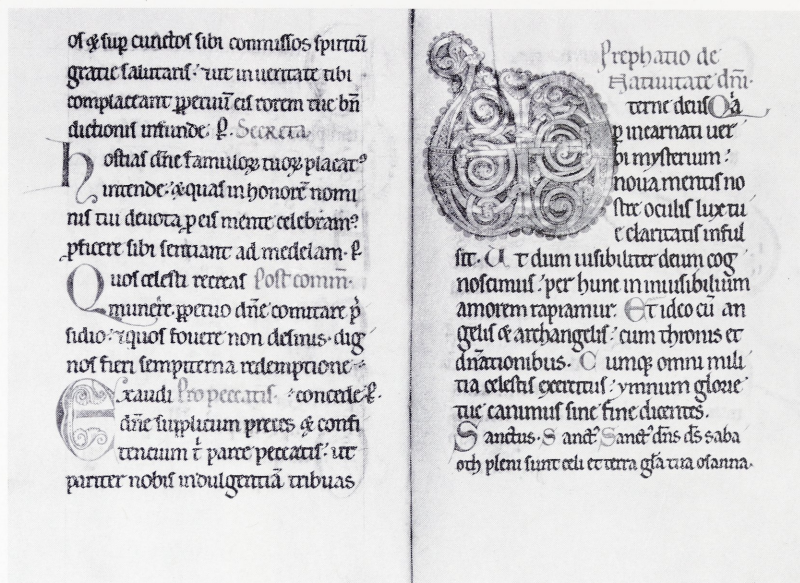 os & suꝑ cunctos sibi commissos spiritū
gratie salutaris · ⁊ut in ueritate tibi
complaceant ꝑpetuū eis rorem tue bn̄
dictionis infunde. ꝑ. Secreta.
Hostias dn̄e famuloꝝ tuoꝝ placatꝰ
intende · & quas in honorē nomi
nis tui deuota ꝓ eis mente celebramꝰ
ꝓficere sibi sentiant ad medelam. ꝑ.
Quos celesti recreas Post comm̄.
munere. ꝑpetuo dn̄e comitare p̄
sidio · ⁊quos fouere non desinis · dig
nos fieri sempiterna redemptione
Exaudi Pro peccatis. · concede ꝑ.
dn̄e supplicum preces & confi
tencium t̄ parce peccatis · ut
pariter nobis indulgentiā tribuas
Prephatio de
Natiuitate dn̄i.
terne deus Qͥa
ꝑ incarnati uer
bi mysterium ·
noua mentis no
stre oculis lux tu
e claritatis inful
sit. Ut dum uisibiliter deum cog
noscimus · per hunc in inuisibilium
amorem rapiamur. Et ideo cū an
gelis & archangelis · cum thronis et
dn̄ationibus. Cumque omni mili
tia celestis exercitus · ymnum glorie
tue canimus sine fine dicentes.
Sanctus. Sanct᾽ Sanct᾽ dn̄s ds̄ saba
oth pleni sunt celi et terra gl̄a tua osanna.